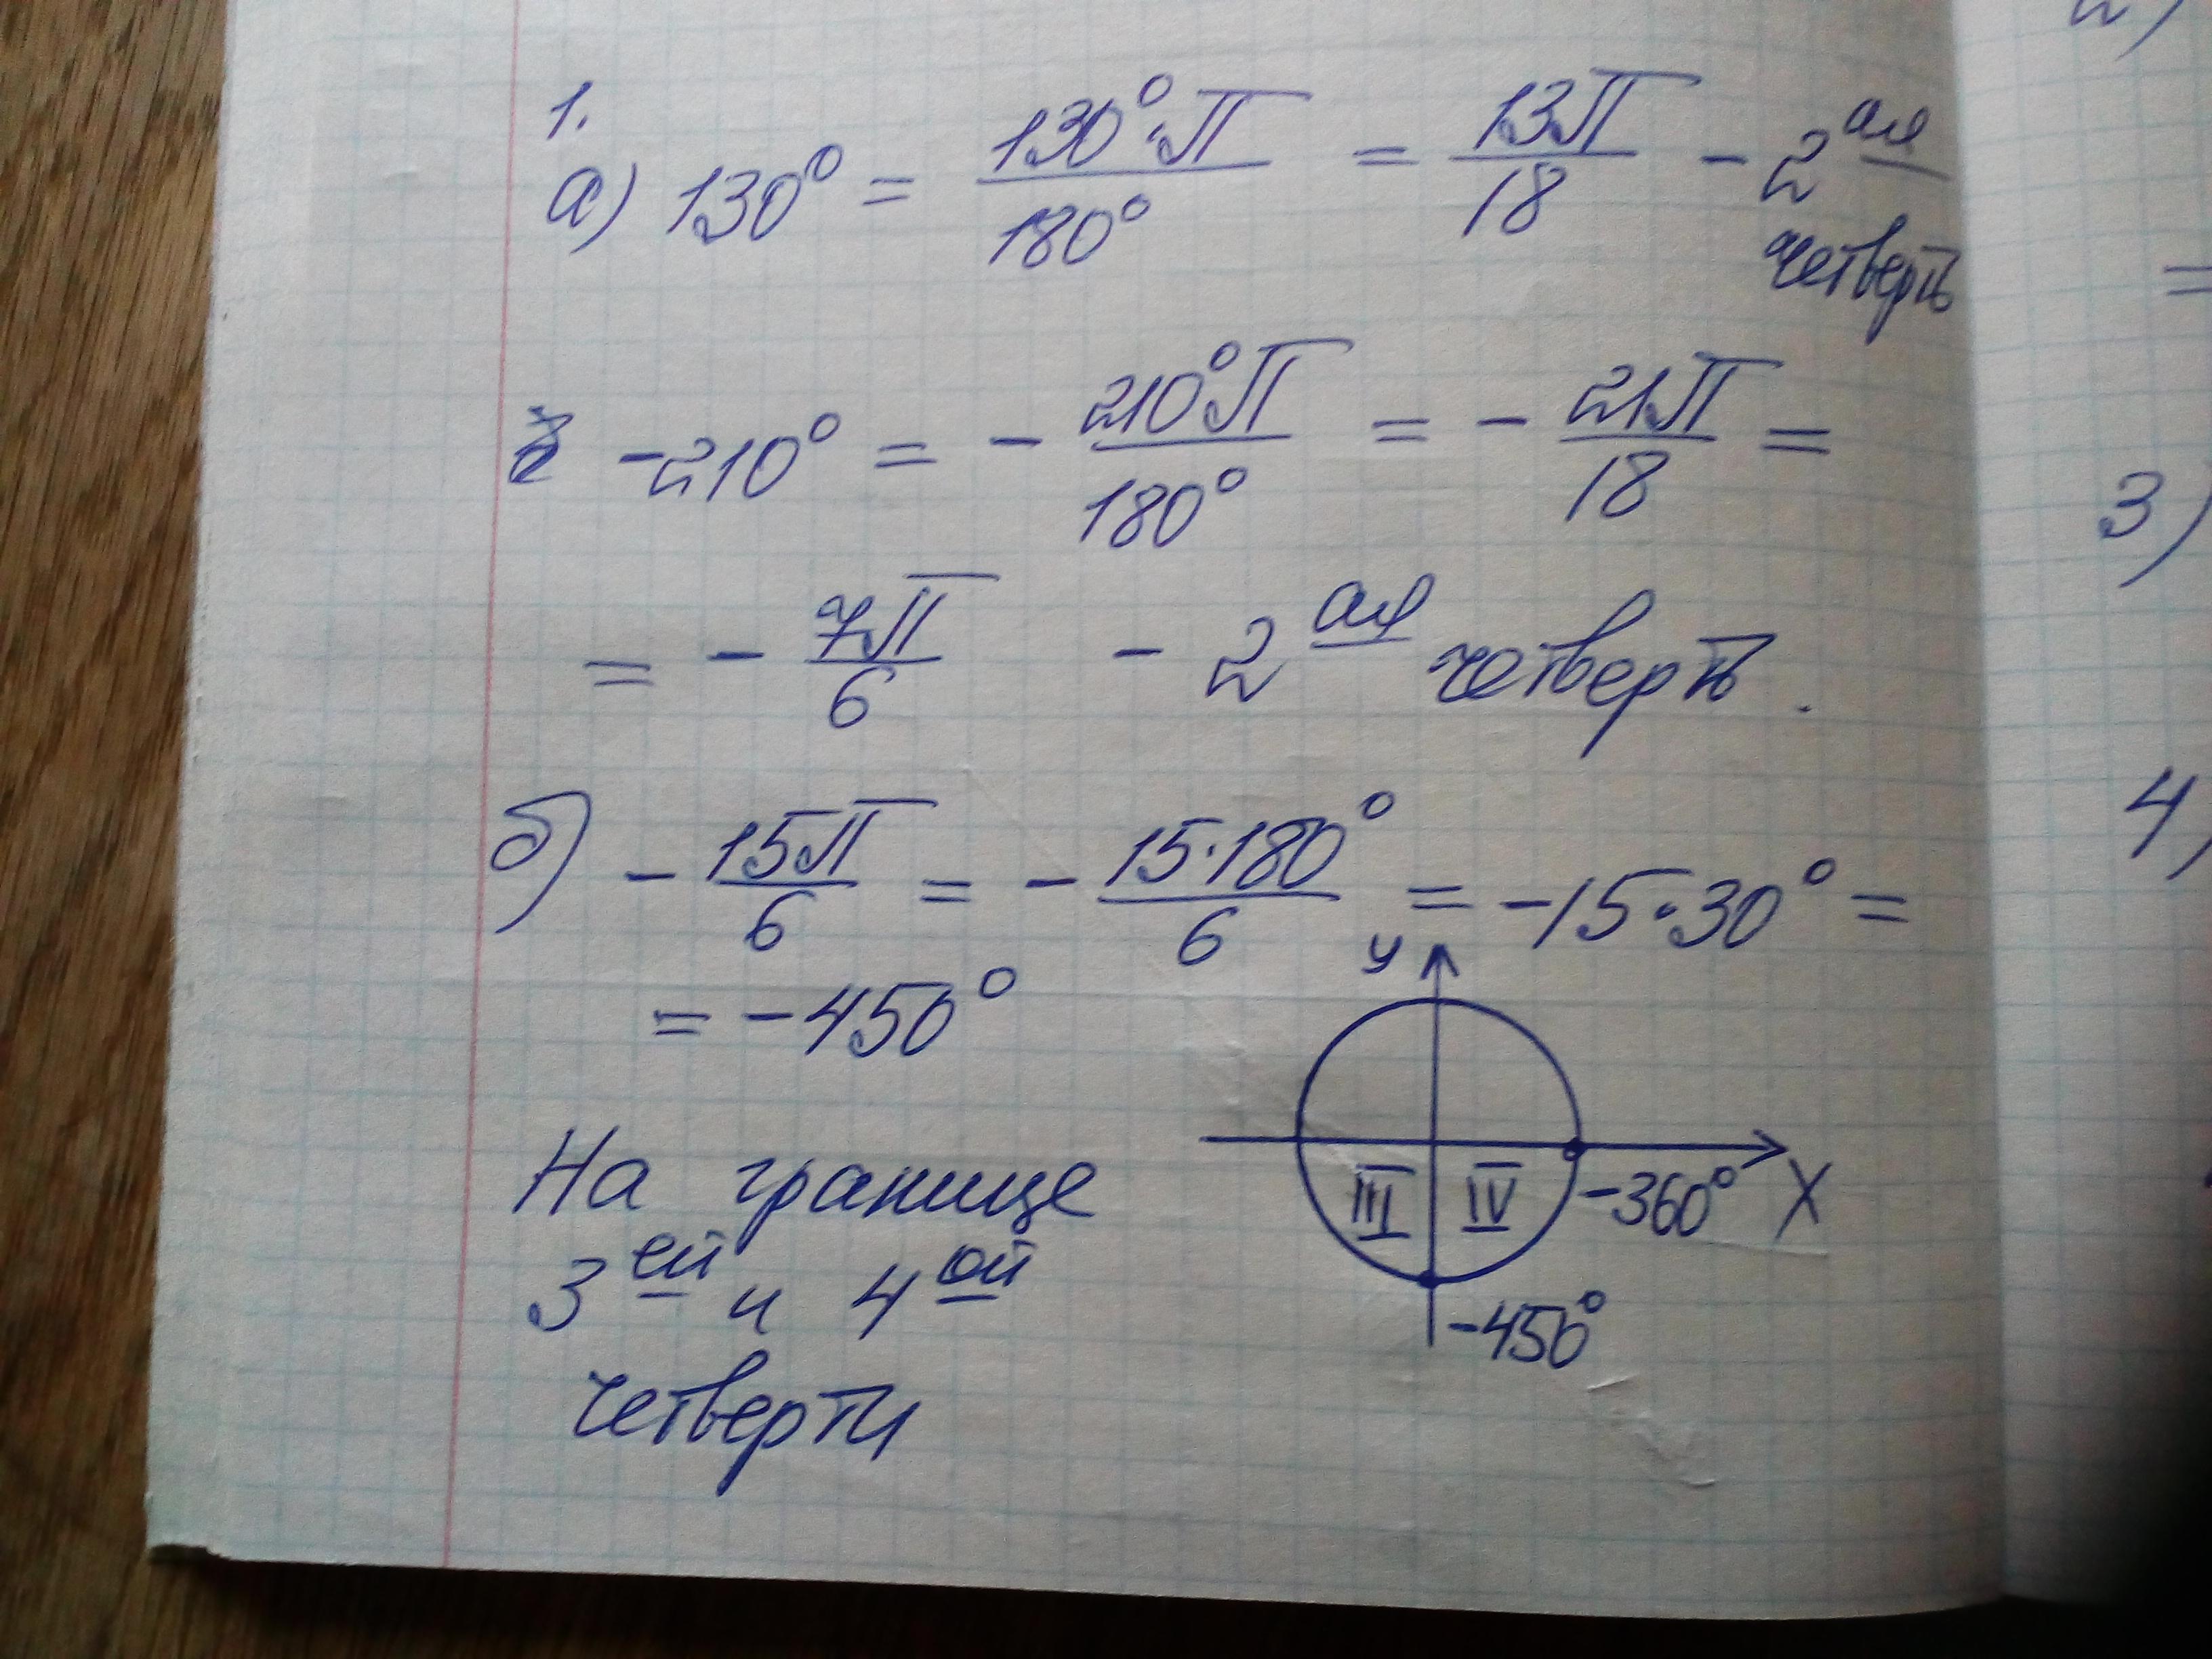 1.
а) 130° = 130°·π / 180° = 13π / 18 - 2ая
четверть
-210° = - 210°π / 180° = - 21π / 18 =
= - 7π / 6 - 2ая четверть.
б) - 15π / 6 = - 15·180° / 6 = -15·30° =
= -450°
y
III IV -360° X
-450°
На границе
3ей и 4ой
четверти
=
3)
4)